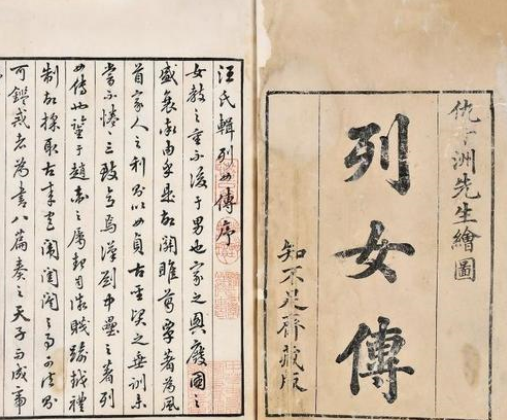 仇十洲先生繪圖
列女傳
知不足齋藏版
汪氏輯列女傳序
女教之重不後于男也家之興廢國之
盛衰率由乎是故關雎葛覃著為風
首家人之利以女貞古聖賢之垂訓未
嘗不惓惓三致意焉漢劉中壘之著列
女傳也于趙衛之屬起自微賤踰越禮
制故採取古來宮闈閨閣之事可法
可鑑戒者為書八篇奏之天子而成帝